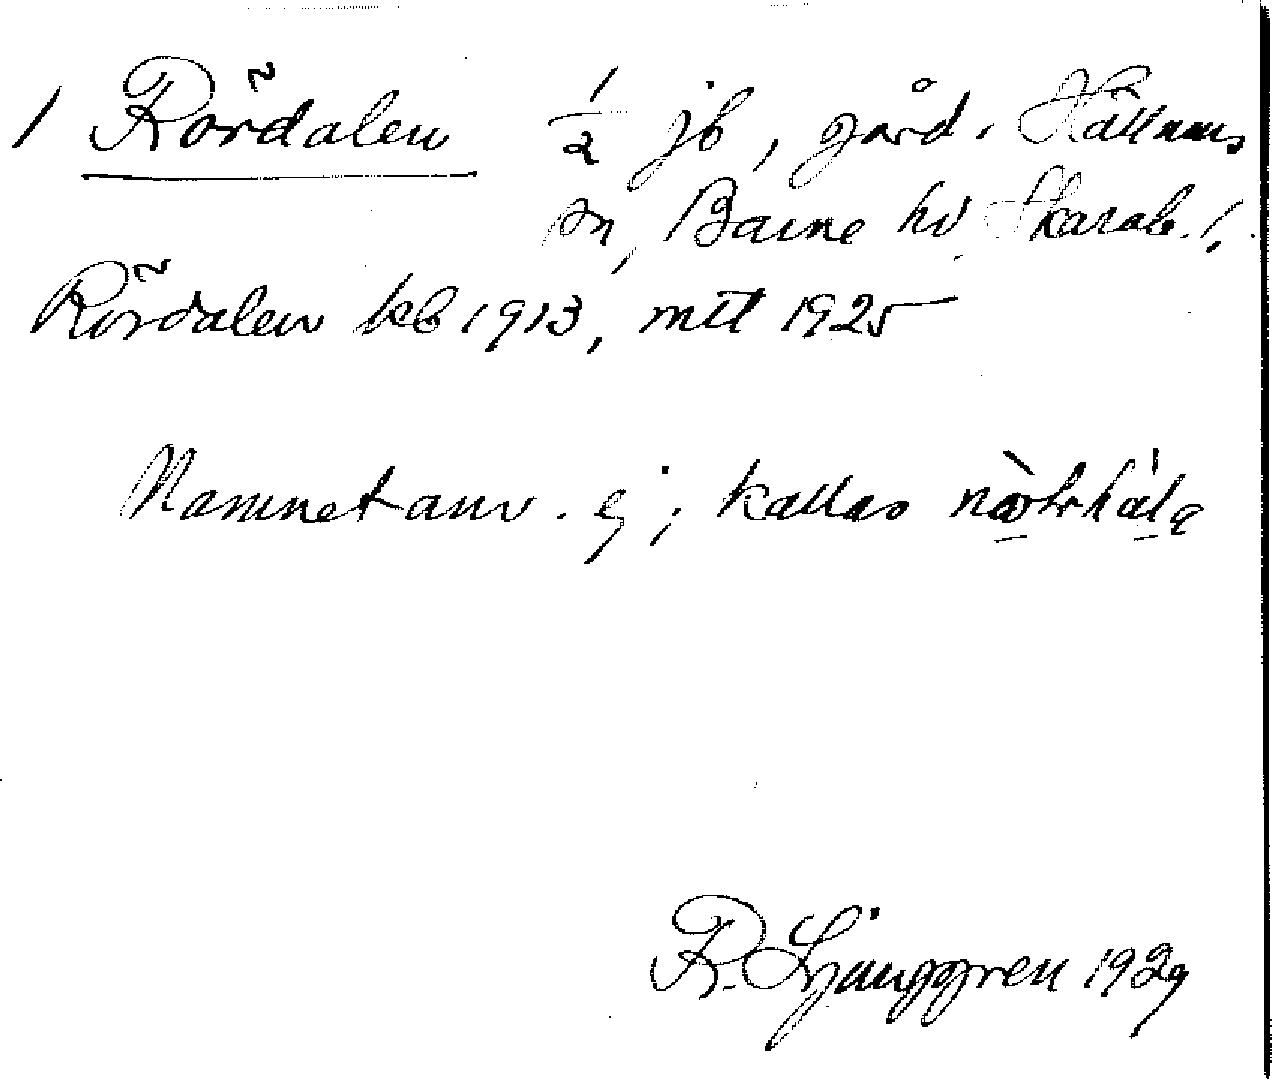 1 Rördalen 1/2 jb, gård. Hällums
sn, Barne hd Skarab. l.
Rördalen kb 1913, mtl 1925
Namnet anv. ej; kallas
R. Ljunggren 1929